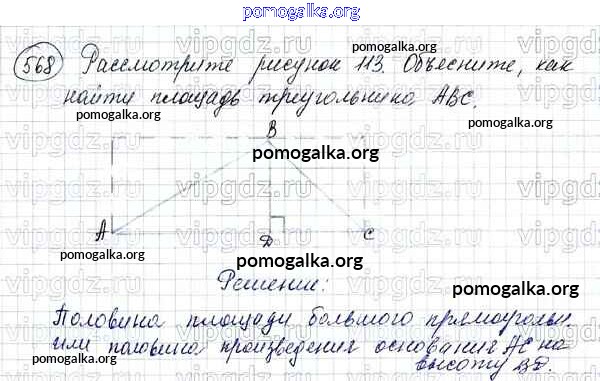 pomogalka.org
568 Рассмотрите рисунок 113. Объясните, как
найти площадь треугольника ABC.
pomogalka.org
pomogalka.org
B
pomogalka.org
A
D
C
pomogalka.org
pomogalka.org
pomogalka.org
Решение:
pomogalka.org
Половина площади большого прямоугольн.
или половина произведения основания AC на
высоту BD.
pomogalka.org
pomogalka.org